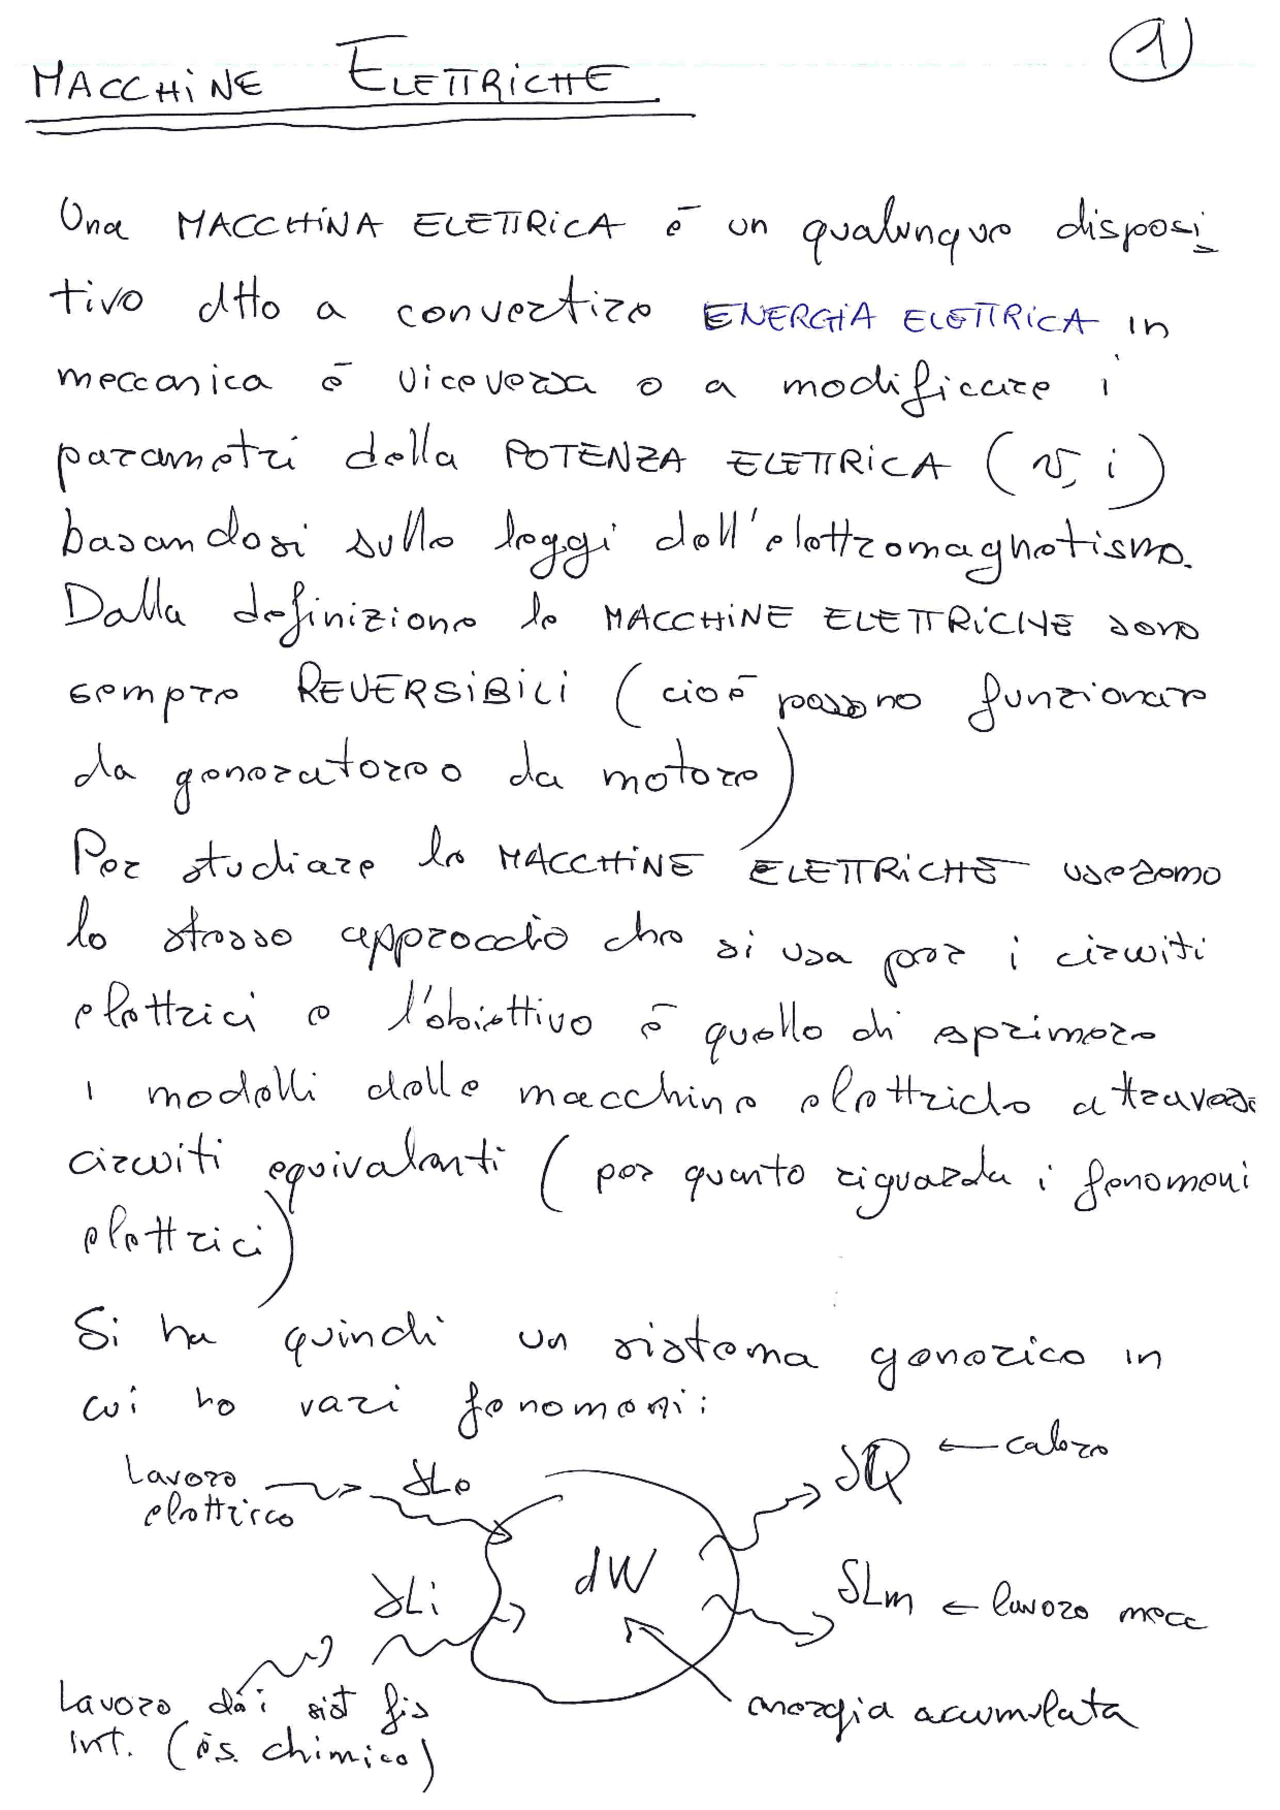 1
MACCHINE ELETTRICHE
Una MACCHINA ELETTRICA è un qualunque disposi
tivo atto a convertire ENERGIA ELETTRICA in
meccanica è viceversa o a modificare i
parametri della POTENZA ELETTRICA (v, i)
basandosi sulle leggi dell'elettromagnetismo.
Dalla definizione le MACCHINE ELETTRICHE sono
sempre REVERSIBILI (cioè possono funzionare
da generatore o da motore)
Per studiare le MACCHINE ELETTRICHE useremo
lo stesso approccio che si usa per i circuiti
elettrici e l'obiettivo è quello di esprimere
i modelli delle macchine elettriche attraverso
circuiti equivalenti (per quanto riguarda i fenomeni
elettrici)
Si ha quindi un sistema generico in
cui ho vari fenomeni:
Lavoro elettrico → δLe
δQ ← calore
δLi
dW
δLm ← lavoro mecc
Lavoro dai sist fis
int. (es. chimico)
energia accumulata